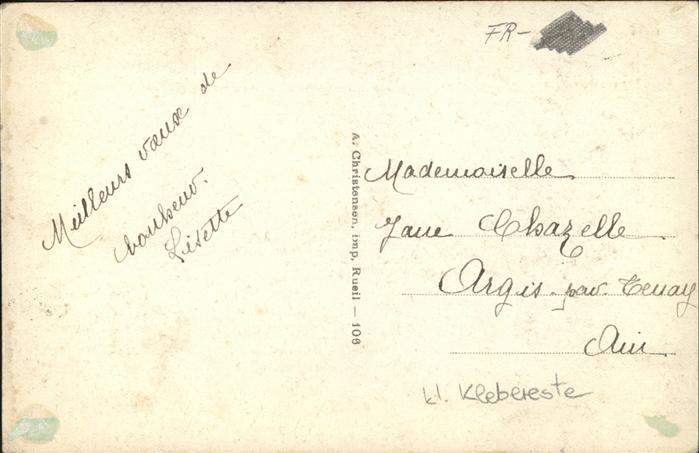 FR-
Meilleurs vœux de
bonheur.
Lisette
A. Christensen, imp, Rueil — 106
Mademoiselle
Jane Chazelle
Argis par Tenay
Ain
kl. Klebereste